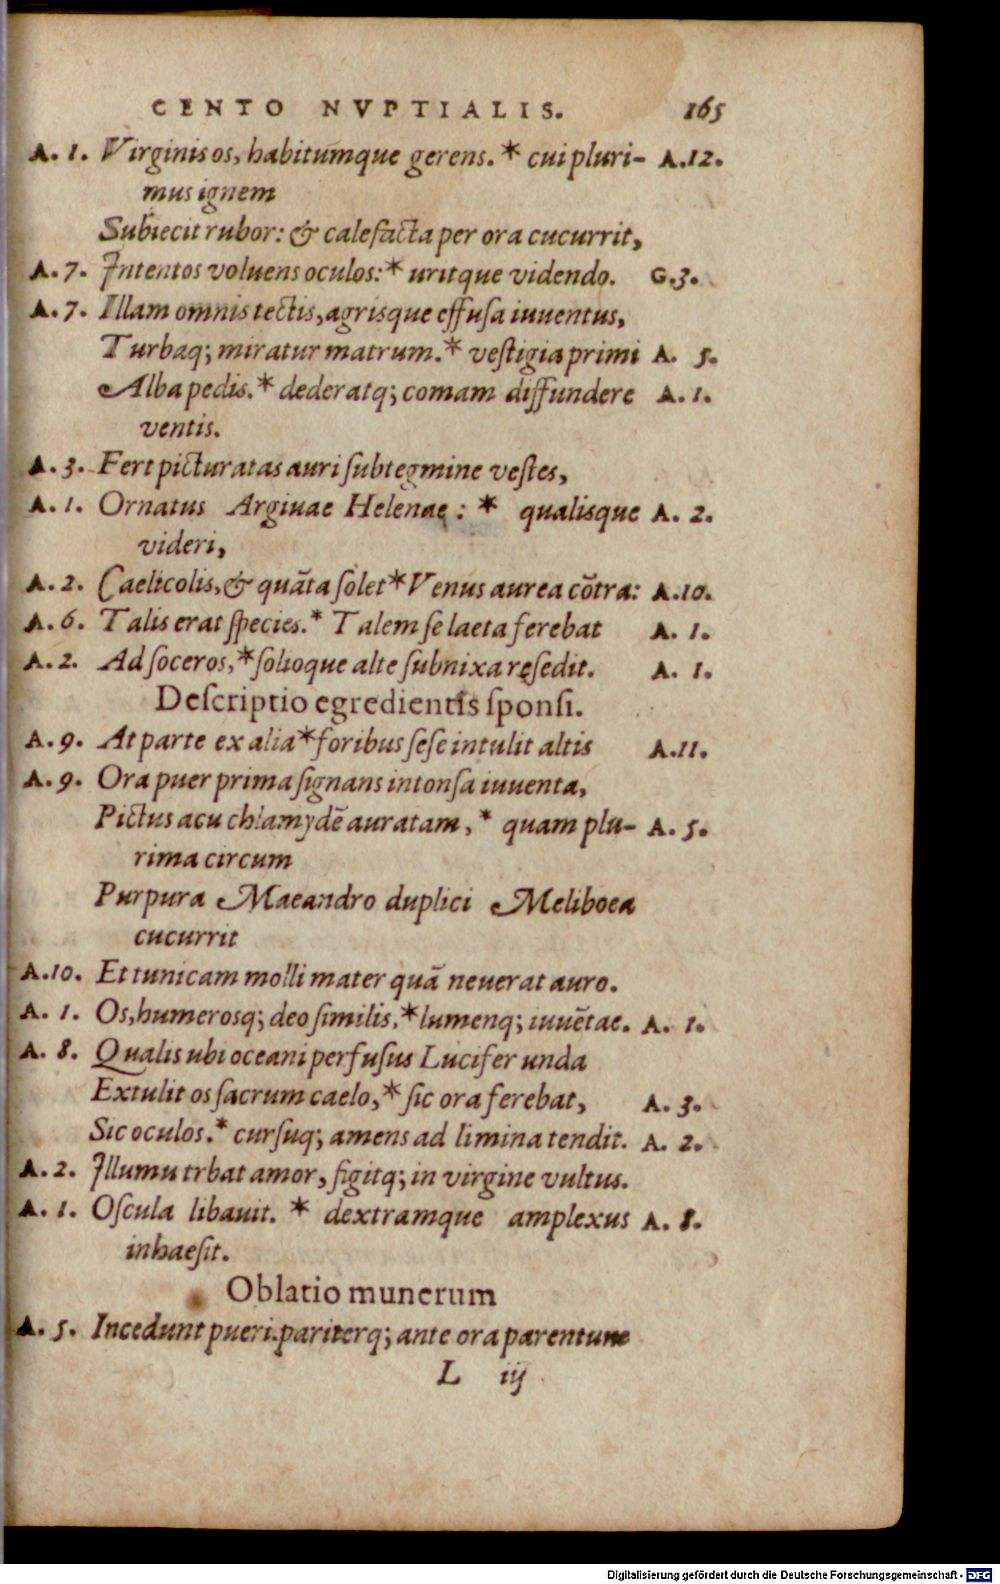 CENTO NVPTIALIS. 165
A. 1. Virginis os, habitumque gerens. * cui pluri- A.12.
mus ignem
Subiecit rubor: & calefacta per ora cucurrit,
A. 7. Intentos voluens oculos: * uritque videndo. G.3.
A. 7. Illam omnis tectis, agrisque effusa iuuentus,
Turbaq; miratur matrum. * vestigia primi A. 5.
Alba pedis. * dederatq; comam diffundere A. 1.
ventis.
A. 3. Fert picturatas auri subtegmine vestes,
A. 1. Ornatus Argiuae Helenae : * qualisque A. 2.
videri,
A. 2. Caelicolis, & quāta solet * Venus aurea cōtra: A.10.
A. 6. Talis erat species. * Talem se laeta ferebat A. 1.
A. 2. Ad soceros, * solioque alte subnixa resedit. A. 1.
Descriptio egredientis sponsi.
A. 9. At parte ex alia * foribus sese intulit altis A.11.
A. 9. Ora puer prima signans intonsa iuuenta,
Pictus acu chlamydē auratam, * quam plu- A. 5.
rima circum
Purpura Maeandro duplici Meliboea
cucurrit
A.10. Et tunicam molli mater quā neuerat auro.
A. 1. Os, humerosq; deo similis, * lumenq; iuuētae. A. 1.
A. 8. Qualis ubi oceani perfusus Lucifer unda
Extulit os sacrum caelo, * sic ora ferebat, A. 3.
Sic oculos. * cursuq; amens ad limina tendit. A. 2.
A. 2. Illumu trbat amor, figitq; in virgine vultus.
A. 1. Oscula libauit. * dextramque amplexus A. 8.
inhaesit.
Oblatio munerum
A. 5. Incedunt pueri. pariterq; ante ora parentum
L iij
Digitalisierung gefördert durch die Deutsche Forschungsgemeinschaft - DFG